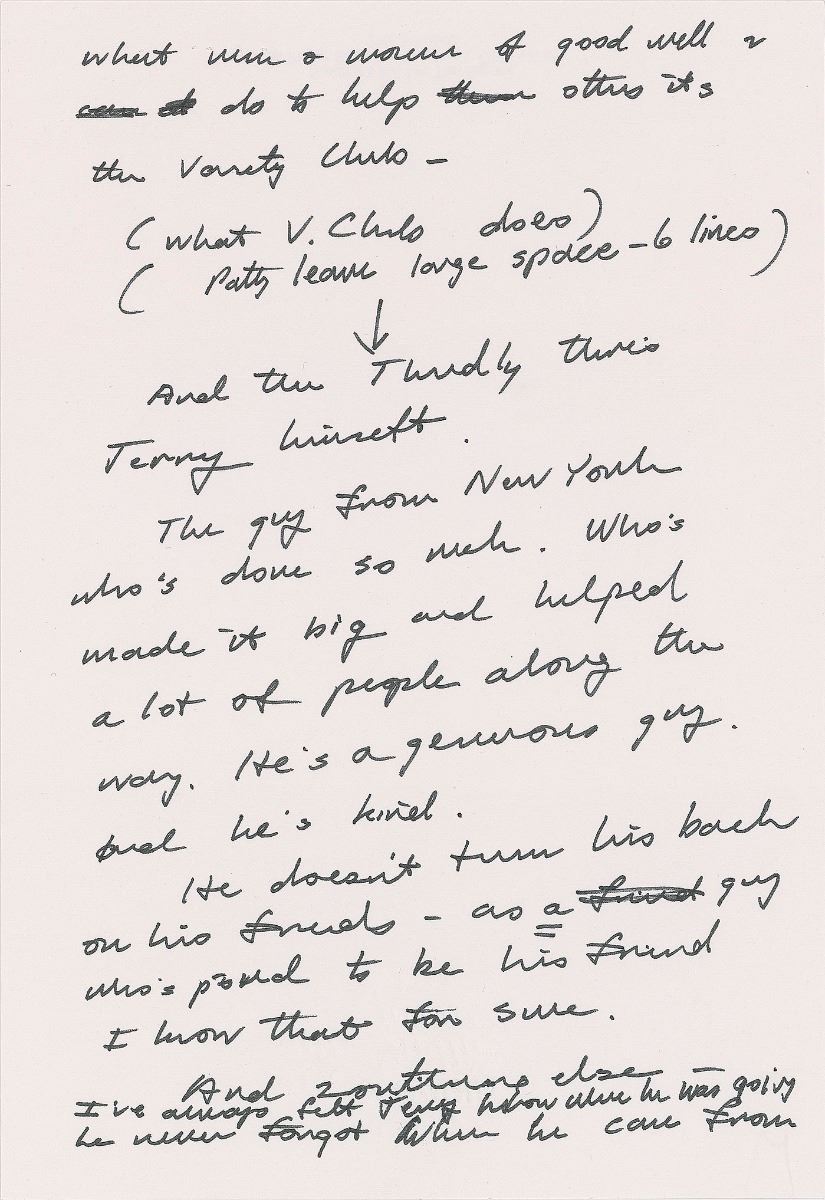 what men & women of good will
do to help others its
the Variety Club –
(what V. Club does)
(Patty leave large space – 6 lines)
And then Thirdly there's
Jerry himself.
The guy from New York
who's done so much. Who's
made it big and helped
a lot of people along the
way. He's a generous guy.
and he's kind.
He doesn't turn his back
on his friends – as a friend guy
who's proud to be his friend
I know that for sure.
And something else
I've always felt Jerry knew where he was going
he never forgot where he came from